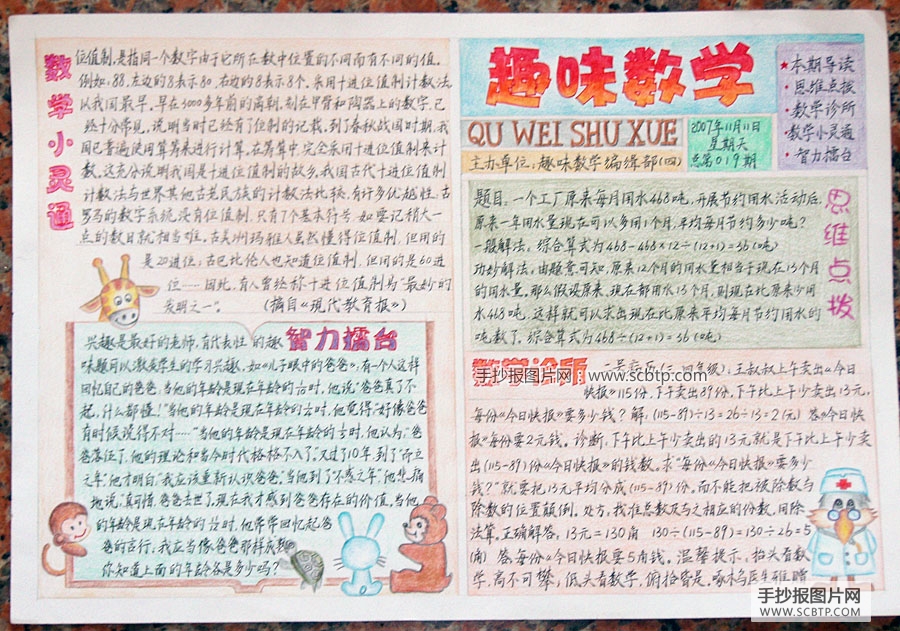 数学小灵通
位值制,是指同一个数字由于它所在数中位置的不同而有不同的值。
例如:88,左边的8表示80,右边的8表示8个。采用十进位值制计数法,
以我国最早。早在3000多年前的商朝,刻在甲骨和陶器上的数字,已
经十分常见,说明当时已经有了位制的记载,到了春秋战国时期,我
国已普遍使用算筹来进行计算。在筹算中,完全采用十进位值制来计
数。这充分说明我国是十进位值制的故乡。我国古代十进位值制
计数法与世界其他古老民族的计数法比较,有许多优越性:古
罗马的数字系统没有位值制,只有7个基本符号,如要记稍大一
点的数目就相当难。古美洲玛雅人虽然懂得位值制,但用的
是20进位;古巴比伦人也知道位值制,但用的是60进
位……因此,有人曾经称十进位值制为“最妙的
发明之一”。 (摘自《现代教育报》)
智力擂台
兴趣是最好的老师,有代表性的趣
味题可以激发学生的学习兴趣,如《儿子眼中的爸爸》:有个人这样
回忆自己的爸爸,当他的年龄是现在年龄的
时,他说“爸爸真了不
起,什么都懂!”当他的年龄是现在年龄的
时,他觉得“好像爸爸
有时候说得不对……”当他的年龄是现在年龄的
时,他认为“爸
爸落伍了,他的理论和当今时代格格不入了。”又过了10年,到了“而立
之年”,他才明白,“我应该重新认识爸爸。”当他到了“不惑之年”,他悲痛
地说:“真可惜,爸爸去世了,现在我才感到爸爸存在的价值。当他
的年龄是现在年龄的
时,他常常回忆起爸
爸的言行,我应当像爸爸那样
你知道上面的年龄各是多少吗?
趣味数学
QU WEI SHU XUE
2007年11月11日
星期天
总第019期
主办单位:趣味数学编辑部(四)
★本期导读
·思维点拨
·数学诊所
·数学小灵通
·智力擂台
思维点拨
题目:一个工厂原来每月用水468吨,开展节约用水活动后,
原来一年用水量现在可以多用1个月,平均每月节约多少吨?
一般解法:综合算式为468-468×12÷(12+1)=36(吨)
巧妙解法:由题意可知,原来12个月的用水量相当于现在13个月
的用水量。那么假设原来、现在都用水13个月,则现在比原来少用
水468吨,这样就可以求出现在比原来平均每月节约用水的
吨数了,综合算式为468÷(12+1)=36(吨)
数学诊所
王叔叔上午卖出《今日
快报》115份,下午卖出89份,下午比上午少卖出13元,
每份《今日快报》要多少钱?解:(115-89)÷13=26÷13=2(元) 答《今日快
报》每份要2元钱。诊断:下午比上午少卖出的13元就是下午比上午少卖
出(115-89)份《今日快报》的钱数。求“每份《今日快报》要多少
钱?”就要把13元平均分成(115-89)份。而不能把被除数与
除数的位置颠倒。处方:找准总数及与之相应的份数,用除
法算。正确解答:13元=130角 130÷(115-89)=130÷26=5
(角) 答,每份《今日快报》要5角钱。温馨提示:抬头看数
学,高不可攀,低头看数学,俯拾皆是。啄木鸟医生
手抄报图片网 www.scbtp.com
手抄报图片网
WWW.SCBTP.COM